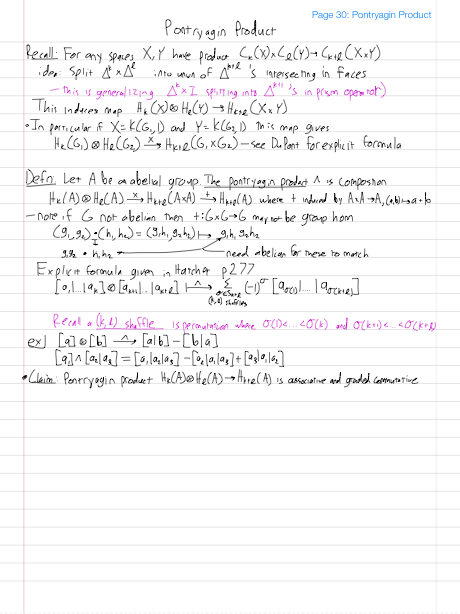 Page 30: Pontryagin Product
Pontryagin Product
Recall: For any spaces X, Y have product C_k(X) × C_l(Y) → C_{k+l}(X×Y)
idea: Split Δ^k × Δ^l into union of Δ^{k+l}'s intersecting in faces
– this is generalizing Δ^k × I splitting into Δ^{k+1}'s in prism operator)
This induces map H_k(X) ⊗ H_l(Y) → H_{k+l}(X×Y)
• In particular if X = K(G_1,1) and Y = K(G_2,1) this map gives
H_k(G_1) ⊗ H_l(G_2) →^× H_{k+l}(G_1×G_2) – see DuPont for explicit formula
Defn: Let A be an abelian group. The pontryagin product ∧ is composition
H_k(A) ⊗ H_l(A) →^× H_{k+l}(A×A) →^+ H_{k+l}(A) where + induced by A×A→A, (a,b)↦a+b
– note if G not abelian then +: G×G→G may not be group hom
(g_1,g_2)•(h_1,h_2) = (g_1h_1, g_2h_2) ↦ g_1h_1g_2h_2
g_1g_2 • h_1h_2 need abelian for these to match
Explicit formula given in Hatcher p277
[a_1|...|a_k] ⊗ [a_{k+1}|...|a_{k+l}] ↦^∧ Σ_{σ∈S_{k+l} (k,l) shuffles} (-1)^σ [a_{σ(1)}|...|a_{σ(k+l)}]
Recall a (k,l) shuffle is permutation where σ(1)<...<σ(k) and σ(k+1)<...<σ(k+l)
ex) [a] ⊗ [b] →^∧ [a|b] – [b|a]
[a_1] ∧ [a_2|a_3] = [a_1|a_2|a_3] – [a_2|a_1|a_3] + [a_2|a_3|a_1]
• Claim: Pontryagin product H_k(A) ⊗ H_l(A) → H_{k+l}(A) is associative and graded commutative